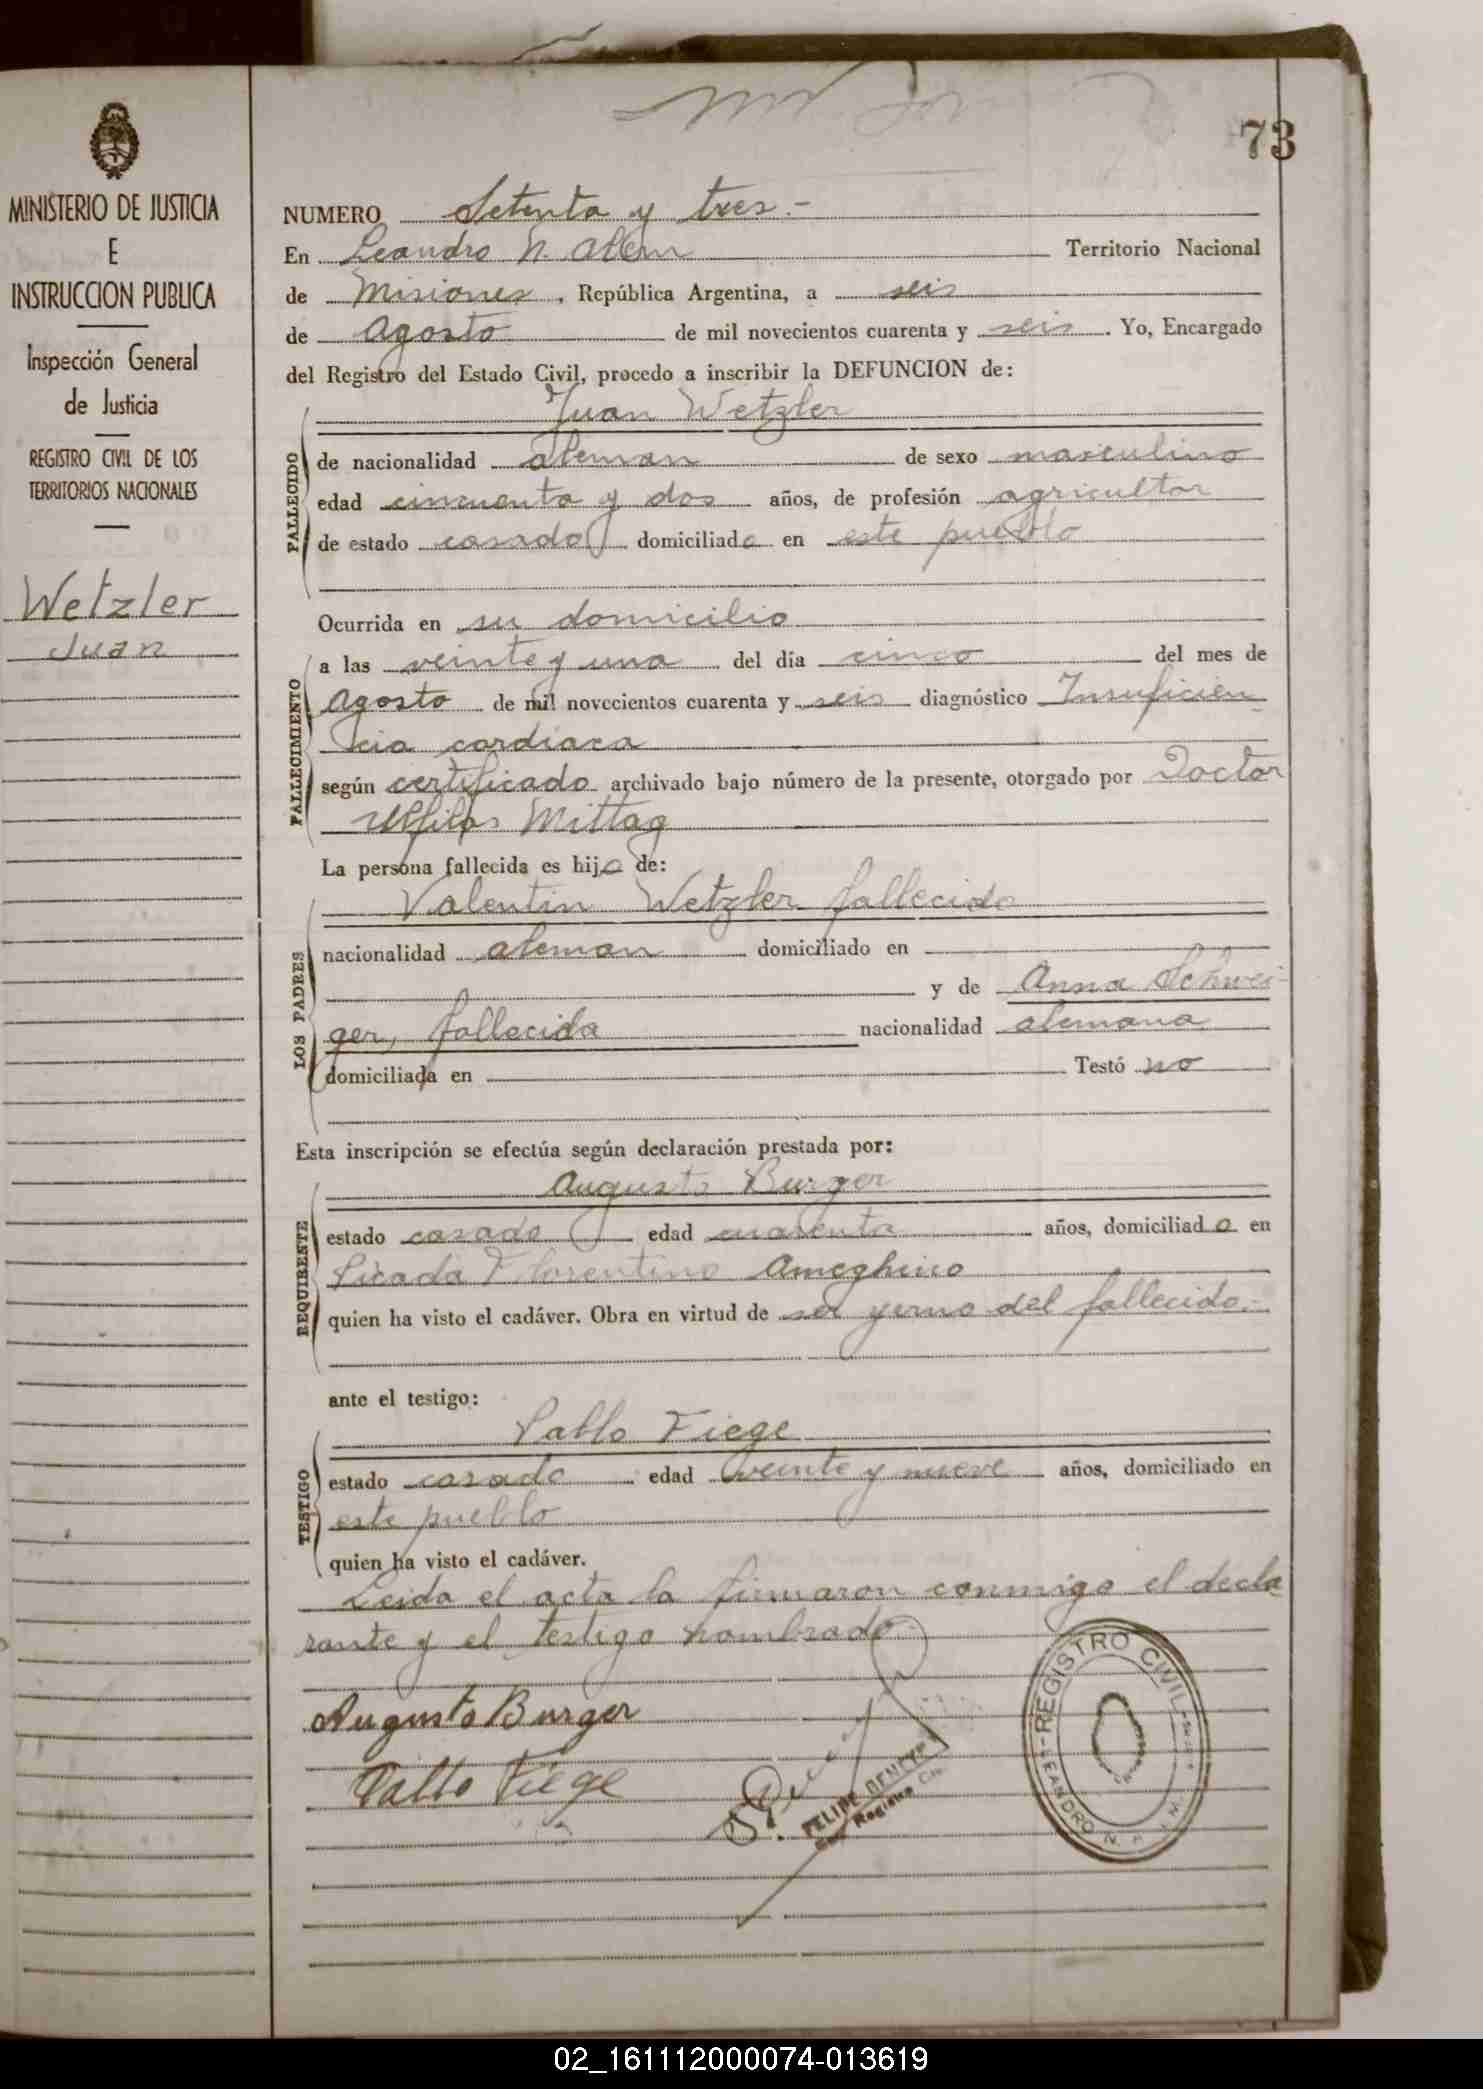 73
MINISTERIO DE JUSTICIA
E
INSTRUCCION PUBLICA
Inspección General
de Justicia
REGISTRO CIVIL DE LOS
TERRITORIOS NACIONALES
Wetzler
Juan
NUMERO Setenta y tres.-
En Leandro N. Alem Territorio Nacional
de Misiones, República Argentina, a seis
de Agosto de mil novecientos cuarenta y seis. Yo, Encargado
del Registro del Estado Civil, procedo a inscribir la DEFUNCION de:
FALLECIDO
Juan Wetzler
de nacionalidad aleman de sexo masculino
edad cincuenta y dos años, de profesión agricultor
de estado casado domiciliado en este pueblo
FALLECIMIENTO
Ocurrida en su domicilio
a las veinte y una del día cinco del mes de
Agosto de mil novecientos cuarenta y seis diagnóstico Insuficien
cia cardiaca
según certificado archivado bajo número de la presente, otorgado por Doctor
Ulfilas Mittag
La persona fallecida es hijo de:
LOS PADRES
Valentin Wetzler fallecido
nacionalidad aleman domiciliado en
y de Anna Schwei-
ger, fallecida nacionalidad alemana
domiciliada en Testó no
Esta inscripción se efectúa según declaración prestada por:
REQUIRENTE
Augusto Burger
estado casado edad cuarenta años, domiciliado en
Picada Florentino Ameghino
quien ha visto el cadáver. Obra en virtud de ser yerno del fallecido.-
ante el testigo:
TESTIGO
Pablo Fiege
estado casado edad veinte y nueve años, domiciliado en
este pueblo
quien ha visto el cadáver.
Leida el acta la firmaron conmigo el decla
rante y el testigo nombrado
Augusto Burger
Pablo Fiege
FELIPE
Registro
REGISTRO CIVIL
LEANDRO N.
02_161112000074-013619